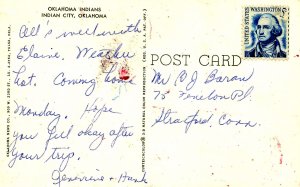 OKLAHOMA INDIANS
INDIAN CITY, OKLAHOMA
All's well with
Elaine. Weather
hot. Coming home
Monday. Hope
you feel okay after
your trip.
Genevieve + Hank
POST CARD
UNITED STATES
WASHINGTON
5¢
Mr. C J Baran
75 Fenelon Pl.
Stratford, Conn.